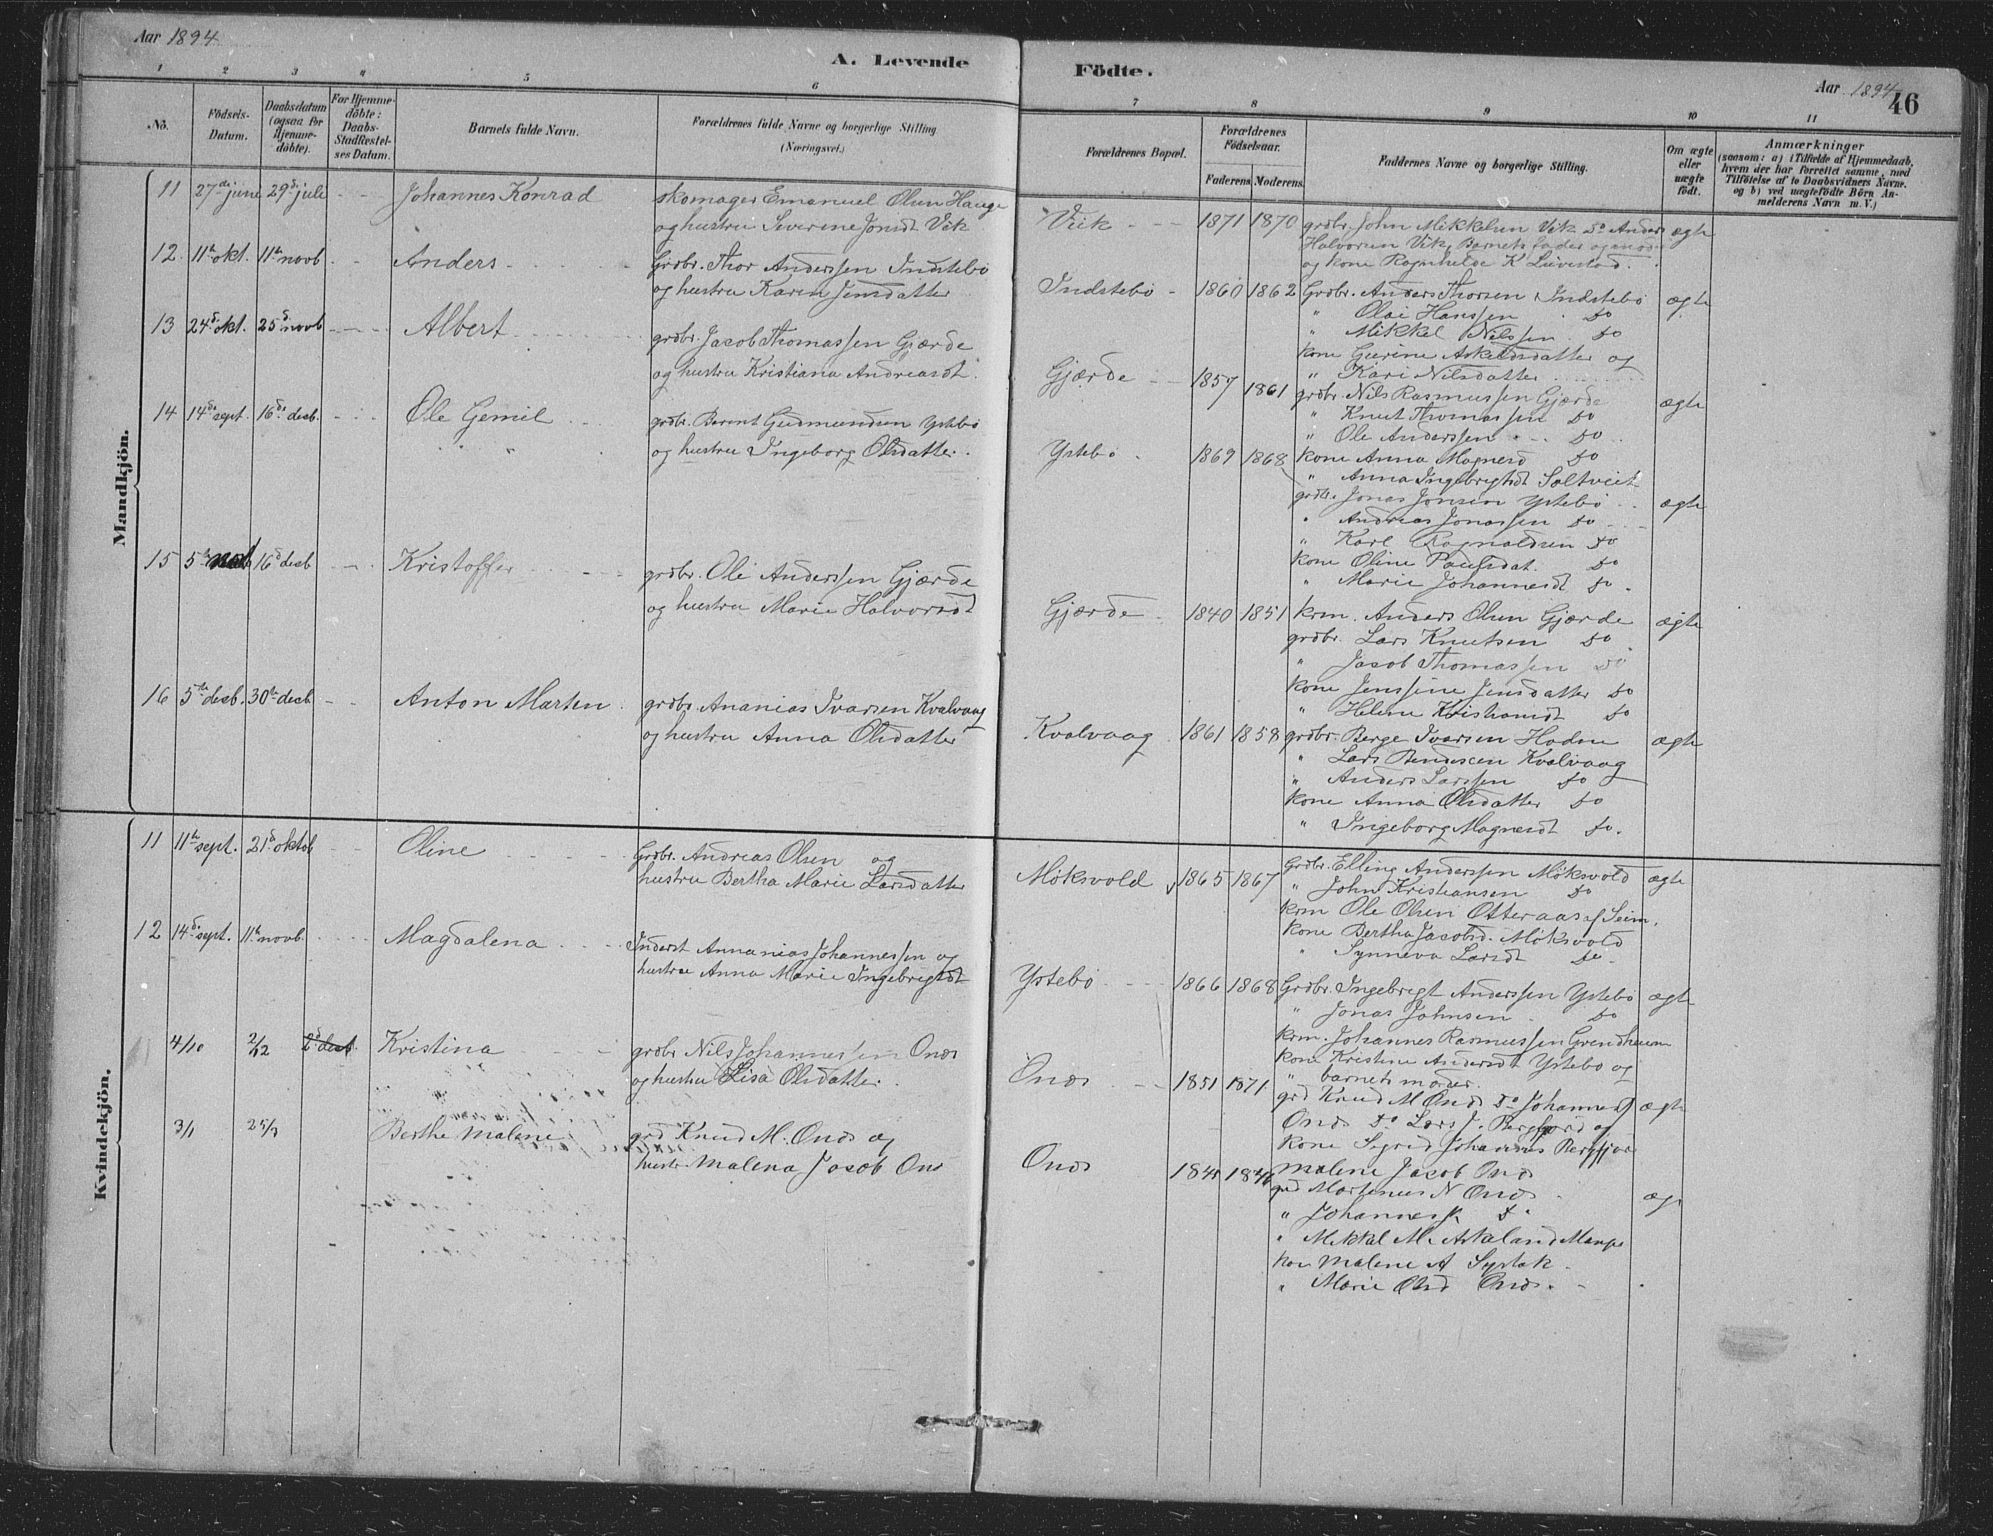 Aar 1894
A. Levende
Födte.
Aar 1894
46
1 2 3 4 5 6 7 8 9 10 11
No.
Födsels-Datum.
Daabsdatum (ogsaa for Hjemme-döbte).
For Hjemme-döbte: Daabs-Stadfæstel-ses Datum.
Barnets fulde Navn.
Forældrenes fulde Navne og borgerlige Stilling
(Næringsvei.)
Forældrenes Bopæl.
Forældrenes Födselsaar.
Faderens Moderens
Faddernes Navne og borgerlige Stilling.
Om ægte eller uægte födt.
Anmærkninger
(saasom: a) i Tilfælde af Hjemmedaab, hvem der har forrettet samme, med Tilföielse af to Daabsvidners Navne. og b) ved uægtefödte Börn An-melderens Navn m. V.)
Mandkjön.
11 27de june 29de juli Johannes Konrad
skomager Emanuel Olsen Hauge
og hustru Severine Jonsdt Vik
Viik 1871 1870
grdbr. John Mikkelsen Vik Do Anders ægte
Halvorsen Vik, Barnets fader og
og kone Ragnhilde K
12 11te okt. 11te novb Anders
Grdbr. Thor Anderssen Indstebö
og hustru Karen Jensdatter
Indstebö 1860 1862
Grdbr. Anders Thorsen Indstebö ægte
" Olai Hanssen do
" Mikkel Nilssen do
kone Gurine Askeldsdatter og
" Kari Nilsdatter
13 24de okt. 25de novb Albert
grdbr. Jacob Thomassen Gjærde
og hustru Kristiana Andreasdt.
Gjærde 1857 1861
grdbr. Nils Rasmussen Gjærde ægte
" Knut Thomassen do
" Ole Anderssen do
kone Anna Magnesd do
" Anna Ingebrigtdt Saltveit
14 14de sept. 16de decb. Ole Gemil
grdbr. Berent Gudmundsen Ystebö
og hustru Ingeborg Olsdatter.
Ystebö 1869 1868
grdbr. Jonas Jonsen Ystebö ægte
" Andreas Jonassen do
" Karl Ragnaldsen do
kone Oline Paulsdat. do
" Marie Johannesdt do.
15 5te 16de decb Kristoffer
grdbr. Ole Anderssen Gjærde
og hustru Marie Halvorsdt
Gjærde 1840 1851
krm. Anders Olsen Gjærde ægte
grdbr. Lars Knutsen do
" Jacob Thomassen do
kone Jenssine Jensdatter do
" Helene Kristiansdt do
16 5te decb. 30te decb Anton Marten
grdbr. Ananias Ivarsen Kvalvaag
og hustru Anna Olsdatter
Kvalvaag 1861 1858
grdbr. Berge Ivarsen Hadne ægte
" Lars Kvalvaag
" Anders Larssen do
kone Anna Olsdatter do
" Ingeborg Magnesdt do.
Kvindekjön.
11 11te sept. 21de oktob Oline
Grdbr. Andreas Olsen og
hustru Bertha Marie Larsdatter
Möksvold 1865 1867
Grdbr. Elling Anderssen Möksvold ægte
" John Kristiansen do
krm Ole Olsen Otteraas af Seim.
kone Bertha Jacobsd. Möksvold
" Synneva Larsdt do.
12 14de sept. 11te novb. Magdalena
Inderst Annanias Johannessen og
hustru Anna Marie Ingebrigtdt
Ystebö 1866 1868
Grdbr. Ingebrigt Anderssen Ystebö ægte
" Jonas Johnsen do
krm. Johannes Rasmussen Grindheim
kone Kristine Andersdt Ystebö og
" barnets moder.
4/10 2/12 2de decb. Kristina
grdbr Nils Johannessen Onds
og hustru Lisa Olsdatter.
Onds 1851 1871
grd Knud M Onds Do Johannes ægte
Onds Do Lars J. Bergfjord og
kone Segrid Johannes
3/1 25/3 Berthe Malene
grd Knud M. Onds og
hustr. Malena Jacob Ons
Onds 1846
Malene Jacob Onds
grd Martenus N Onds æg
" Johannes do
" Mikkal M. Askeland
kon Malene A
" Marie Olsd Onds.